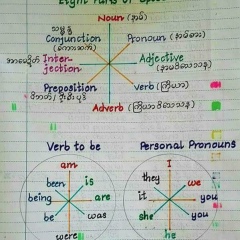 Eight Parts of Speech
Noun (နာမ်)
သမ္ဗန္ဓ
Conjunction Pronoun (နာမ်စား)
(စကားဆက်)
အာမေဍိတ် Inter- Adjective
jection (နာမဝိသေသန)
Preposition verb (ကြိယာ)
Adverb (ကြိယာဝိသေသန)
Verb to be Personal Pronouns
am I
been is they we
being are it you
be was she you
were he